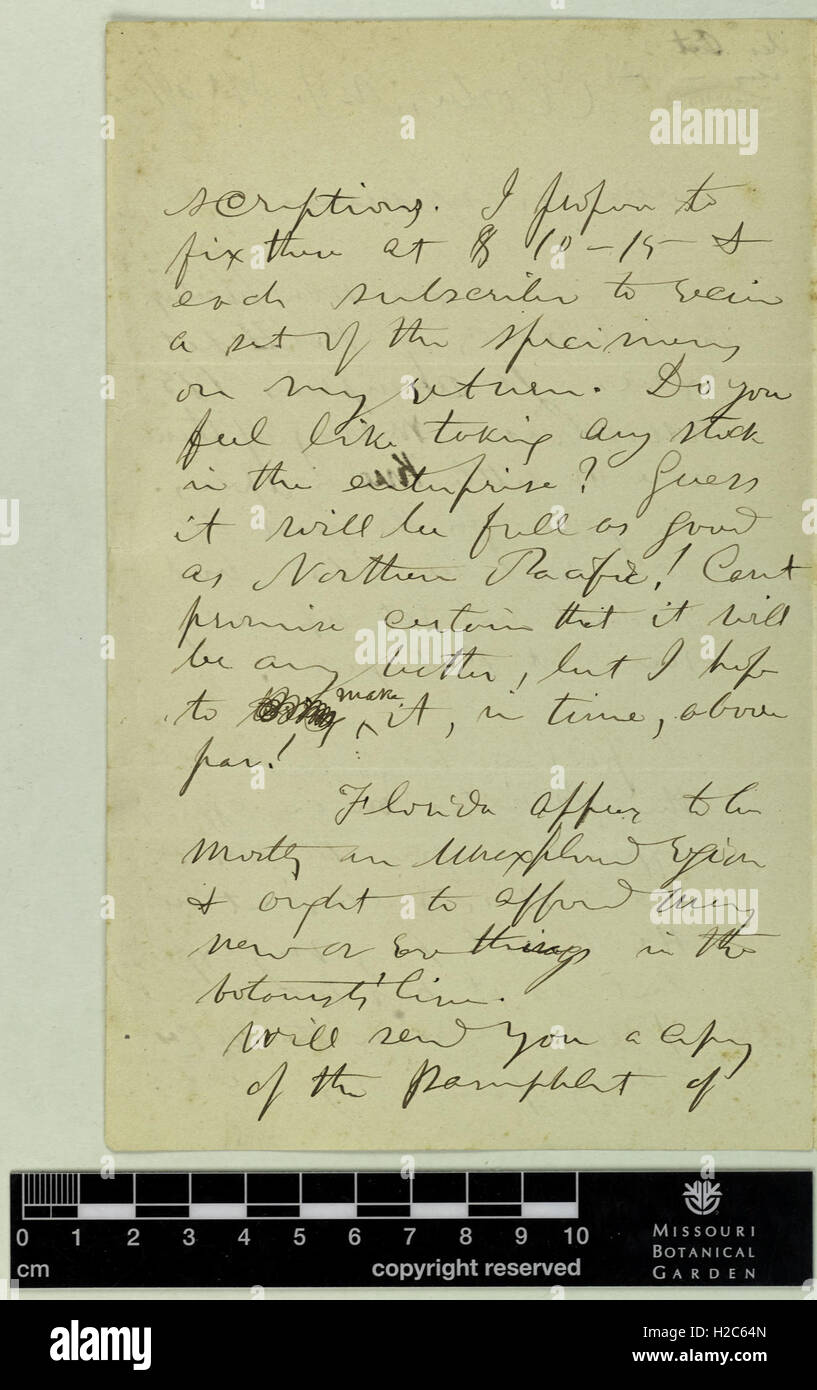 scriptions. I propose to
fix these at $ 10-15 &
each subscriber to receive
a set of the specimens
on my return. Do you
feel like taking any stock
in the enterprise? Guess
it will be full as good
as Northern Pacific! Can't
promise certain that it will
be any better, but I hope
to make it, in time, above
par!
Florida appears to be
mostly an unexplored region
& ought to afford many
new or rare things in the
botanists' line.
Will send you a copy
of the Pamphlet of
0 1 2 3 4 5 6 7 8 9 10
cm copyright reserved
MISSOURI
BOTANICAL
GARDEN
alamy
alamy
alamy
a
a
alamy
H2C64N
www.alamy.com